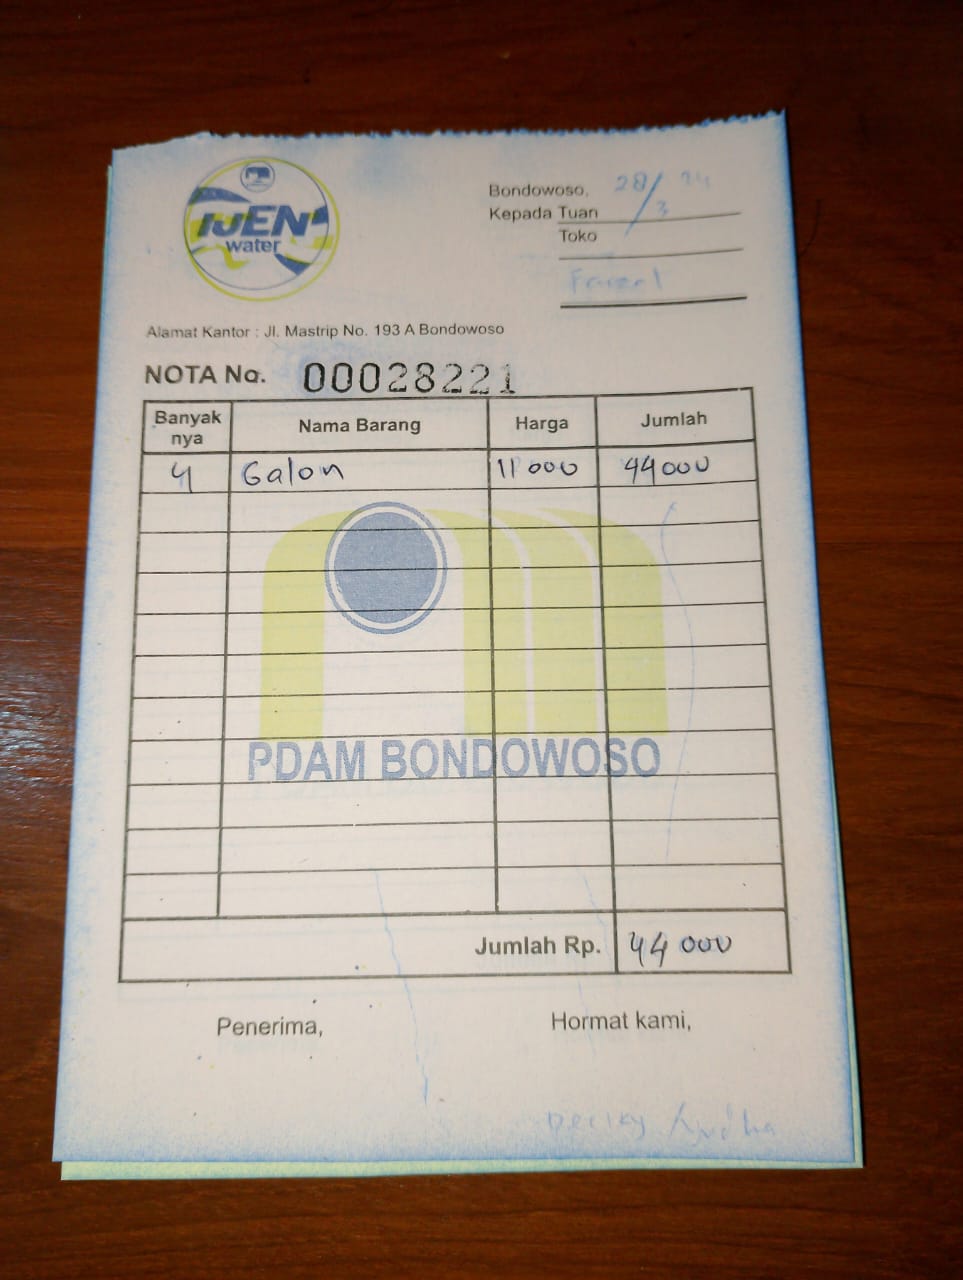 IJEN
water
Bondowoso, 28/3 24
Kepada Tuan
Toko
Faizal
Alamat Kantor : Jl. Mastrip No. 193 A Bondowoso
NOTA No. 00028221
Banyak nya Nama Barang Harga Jumlah
4 Galon 11 000 44 000
PDAM BONDOWOSO
Jumlah Rp. 44 000
Penerima, Hormat kami,